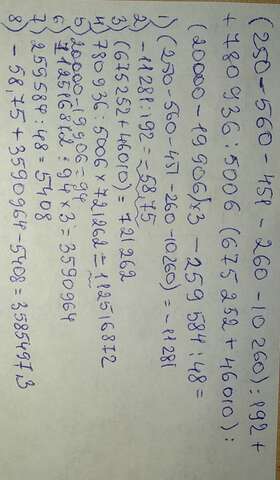 (250-560-451-260-10260):192+
+780936:5006 (675252+46010):
(20000-19906)x3-259584:48=
1) (250-560-451-260-10260)=-11281
2) -11288:192=-58,75
3) (675252+46010)=721262
4) 780936:5006x721262=112516872
5) 20000-19906=94
6) 112516872:94x3=3590964
7) 259584:48=5408
8) -58,75+3590964-5408=3585497,3